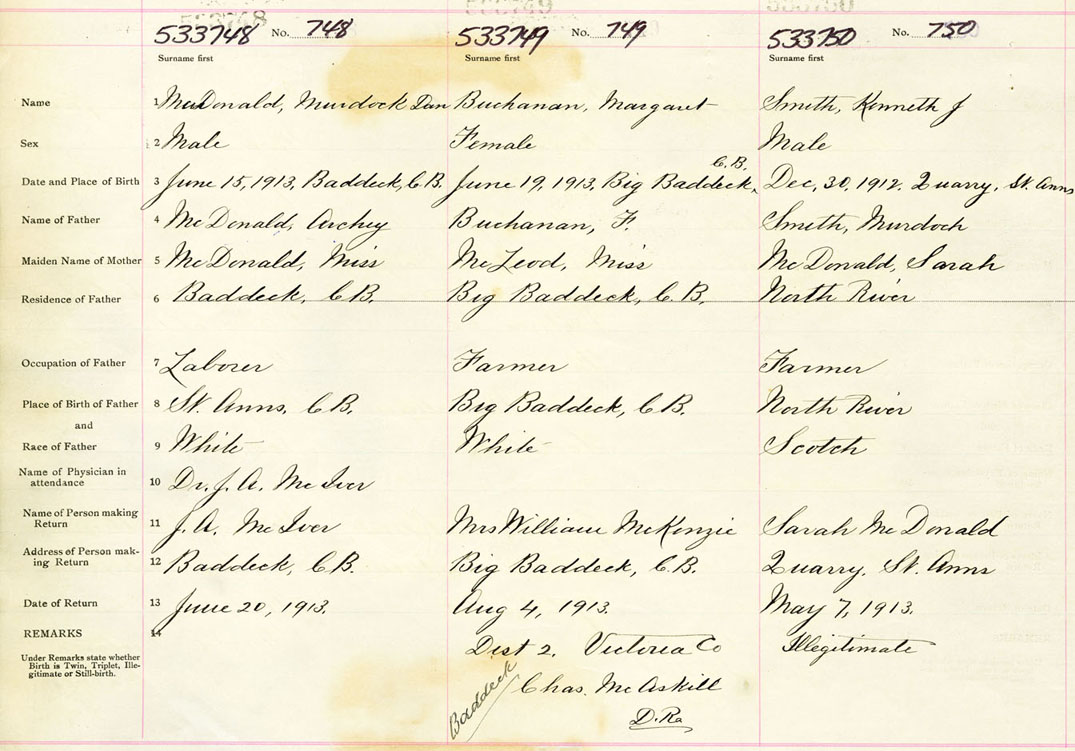 533748 533749 533750
533748 No. 748 533749 No. 749 533750 No. 750
Surname first Surname first Surname first
Name 1 McDonald, Murdock Dan Buchanan, Margaret Smith, Kenneth J
Sex 2 Male Female Male
C.B.
Date and Place of Birth 3 June 15, 1913, Baddeck, C.B. June 19, 1913, Big Baddeck, Dec, 30, 1912. Quarry, St. Anns
Name of Father 4 McDonald, Archey Buchanan, F. Smith, Murdoch
Maiden Name of Mother 5 McDonald, Miss McLeod, Miss McDonald, Sarah
Residence of Father 6 Baddeck, C.B. Big Baddeck, C.B. North River
Occupation of Father 7 Laborer Farmer Farmer
Place of Birth of Father 8 St. Anns, C.B. Big Baddeck, C.B. North River
and
Race of Father 9 White White Scotch
Name of Physician in
attendance 10 Dr. J. A. McIver
Name of Person making
Return 11 J. A. McIver Mrs William McKenzie Sarah McDonald
Address of Person mak-
ing Return 12 Baddeck, C.B. Big Baddeck, C.B. Quarry, St. Anns
Date of Return 13 June 20, 1913. Aug 4, 1913. May 7, 1913.
REMARKS 14 Dist 2. Victoria Co Illegitimate
Under Remarks state whether
Birth is Twin, Triplet, Ille-
gitimate or Still-birth.
Baddeck Chas. McAskill
D.R.